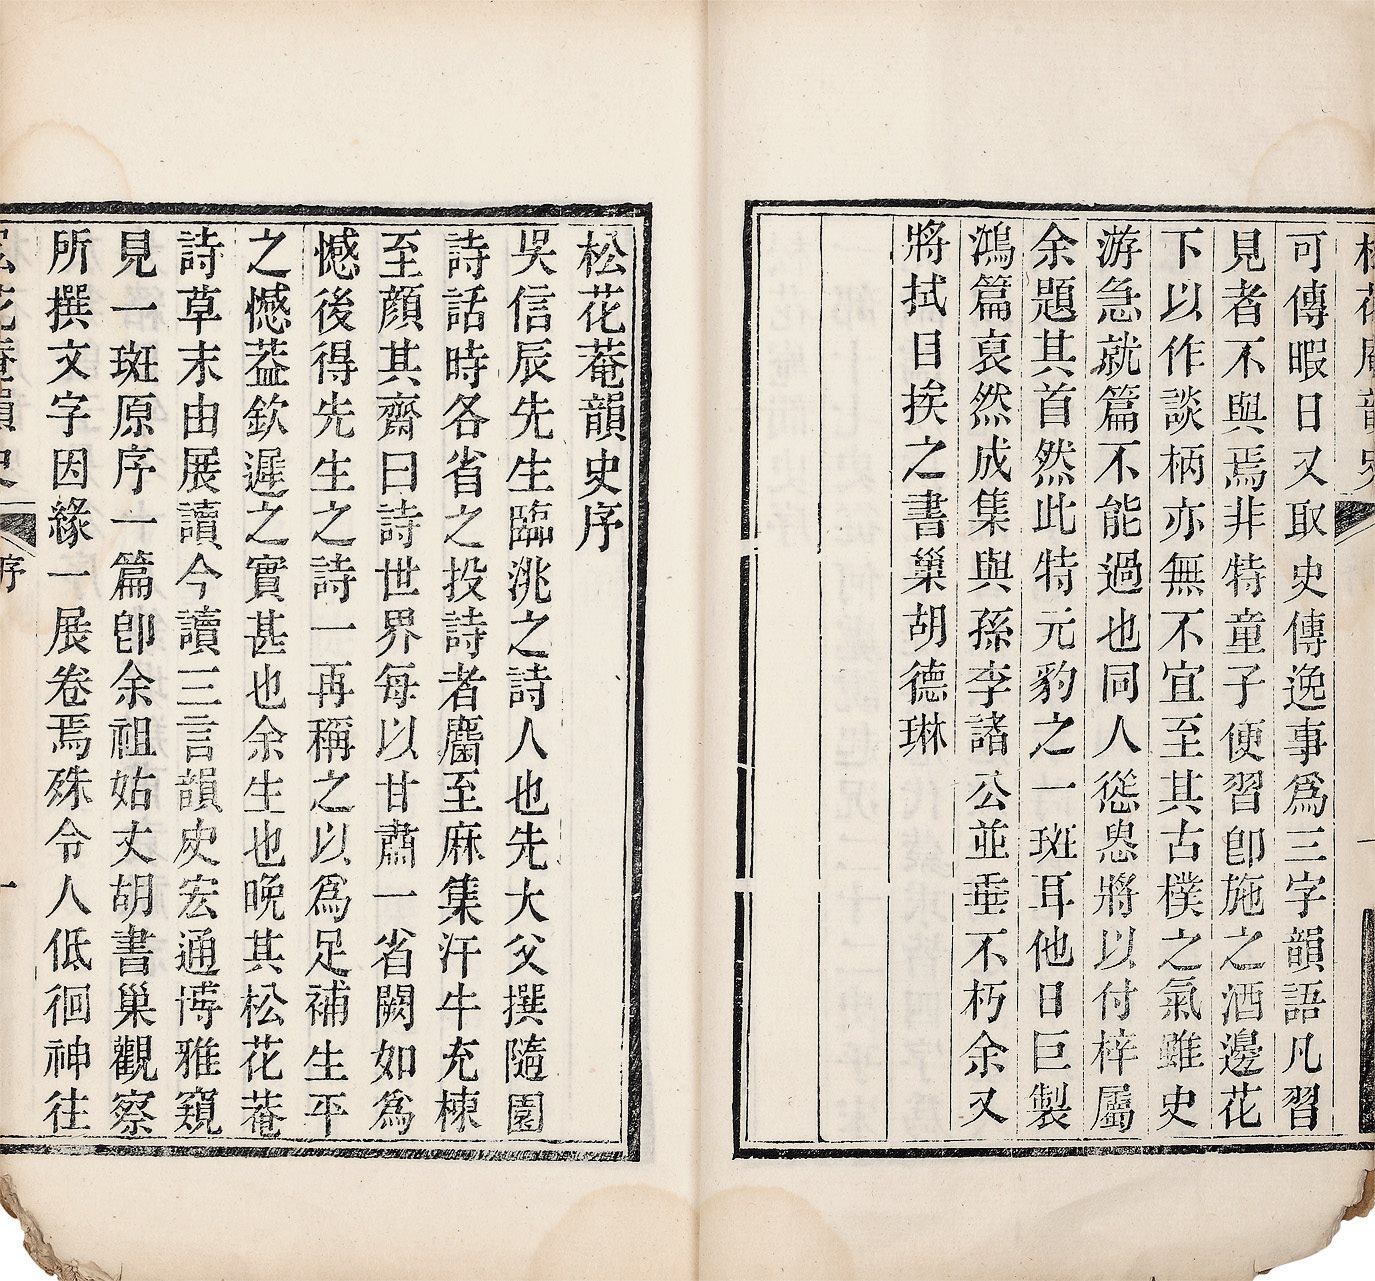 松花庵韻史
一
可傳暇日又取史傳逸事爲三字韻語凡習
見者不與焉非特童子便習卽施之酒邊花
下以作談柄亦無不宜至其古樸之氣雖史
游急就篇不能過也同人慫恿將以付梓屬
余題其首然此特元豹之一斑耳他日巨製
鴻篇裒然成集與孫李諸公並垂不朽余又
將拭目挨之書巢胡德琳
松花菴韻史序
吳信辰先生臨洮之詩人也先大父撰隨園
詩話時各省之投詩者麕至麻集汗牛充棟
至顏其齋曰詩世界每以甘肅一省闕如爲
憾後得先生之詩一再稱之以爲足補生平
之憾葢欽遲之實甚也余生也晚其松花菴
詩草末由展讀今讀三言韻史宏通博雅窺
見一斑原序一篇卽余祖姑丈胡書巢觀察
所撰文字因緣一展卷焉殊令人低徊神往
松花菴韻史
序
一